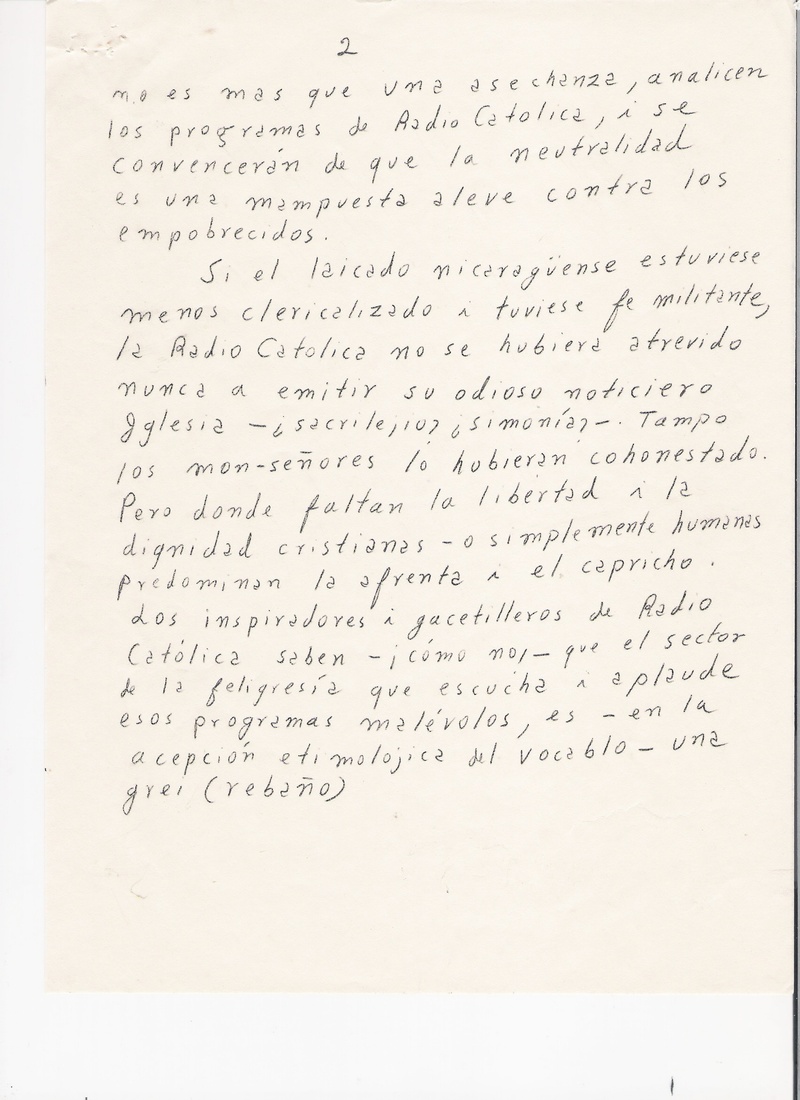 2
no es mas que una asechanza, analicen
los programas de Radio Catolica, i se
convencerán de que la neutralidad
es una mampuesta aleve contra los
empobrecidos.
Si el laicado nicaragüense estuviese
menos clericalizado i tuviese fe militante,
la Radio Catolica no se hubiera atrevido
nunca a emitir su odioso noticiero
Iglesia -¿sacrilejio? ¿simonía?-. Tampo
los mon-señores lo hubieran cohonestado.
Pero donde faltan la libertad i la
dignidad cristianas - o simplemente humanas
predominan la afrenta i el capricho.
Los inspiradores i gacetilleros de Radio
Católica saben -¡cómo no!- que el sector
de la feligresía que escucha i aplaude
esos programas malévolos, es - en la
acepción etimolójica del vocablo - una
grei (rebaño)